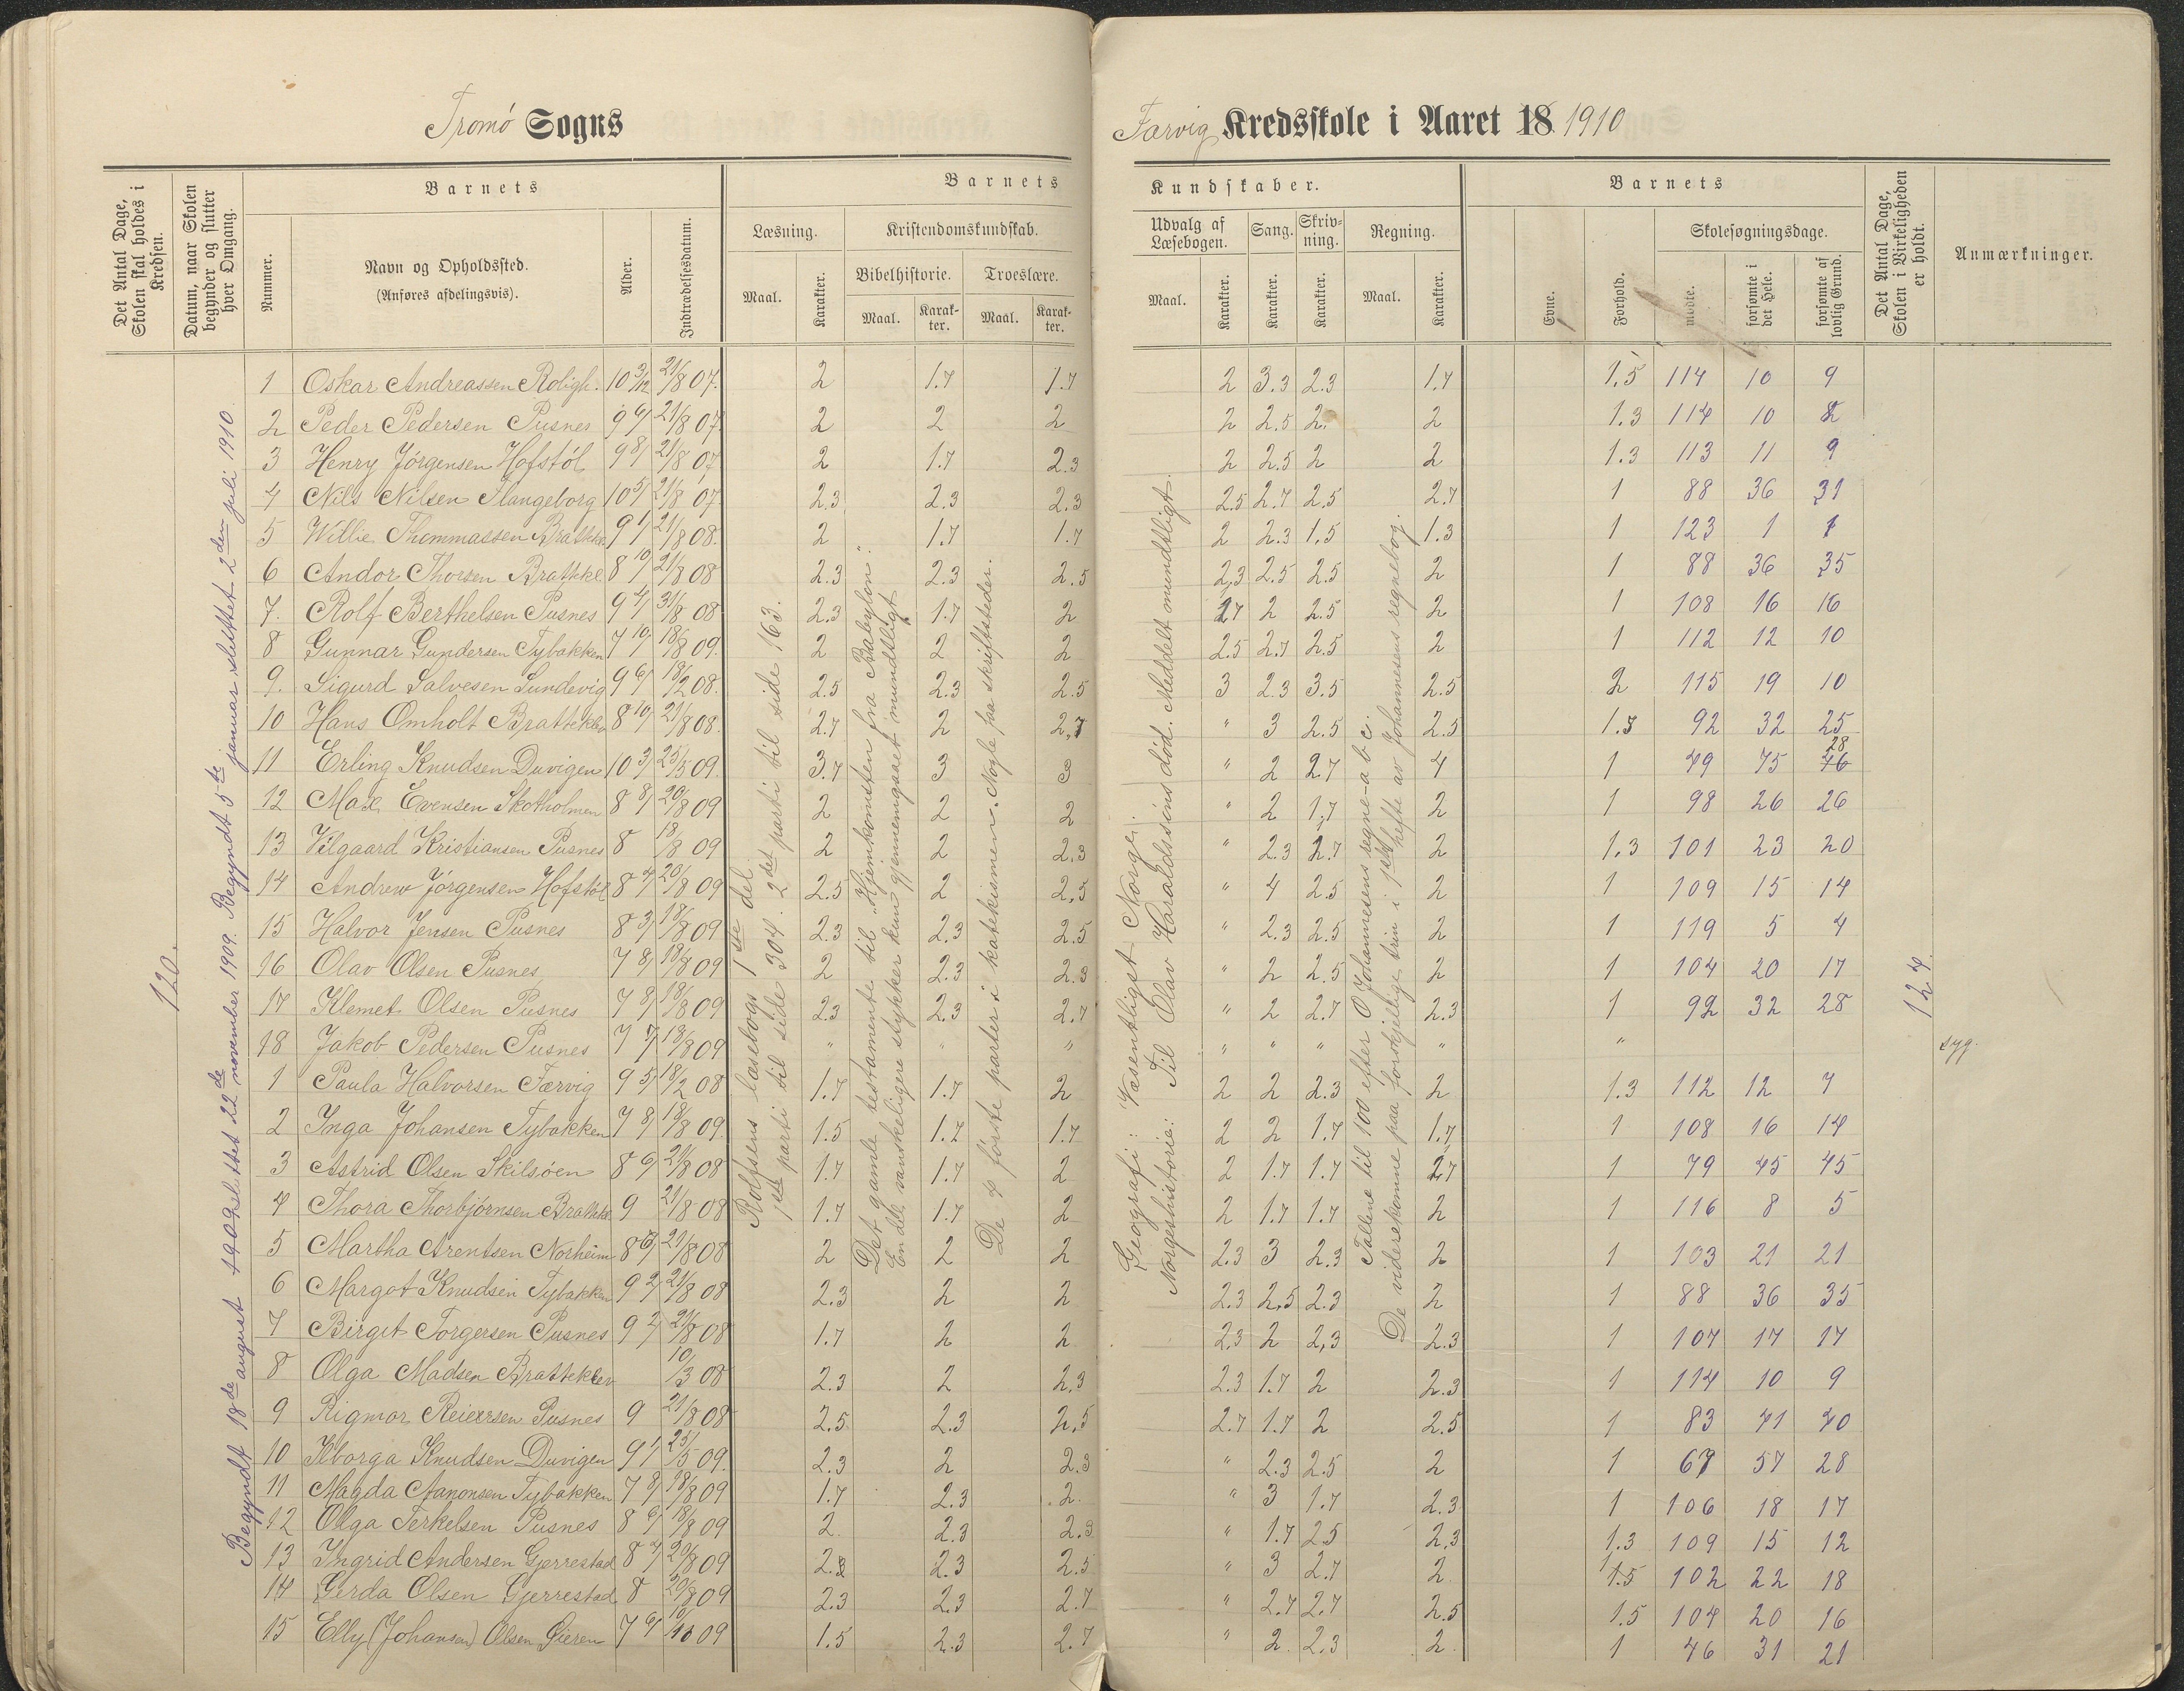 Tromö Sogns
Færvig Kredsskole i Aaret 18 1910
Det Antal Dage, Skolen skal holdes i Kredsen.
Datum, naar Skolen begynder og slutter hver Omgang.
Barnets
Nummer.
Navn og Opholdssted.
(Anføres afdelingsvis).
Alder.
Indtrædelsesdatum.
Barnets Kundskaber.
Læsning.
Maal. Karakter.
Kristendomskundskab.
Bibelhistorie. Troeslære.
Maal. Karakter. Maal. Karakter.
Udvalg af Læsebogen. Sang. Skrivning. Regning.
Maal. Karakter. Karakter. Karakter. Maal. Karakter.
Barnets
Evne. Forhold.
Skolesøgningsdage.
mødte. forsømte i det Hele. forsømte af lovlig Grund.
Det Antal Dage, Skolen i Virkeligheden er holdt.
Anmærkninger.
120.
Begyndt 18de august 1909 sluttet 22de november 1909. Begyndt 5te januar sluttet 2den juli 1910.
Rolfsens læsebogs 1ste del.
1ste parti til side 304. 2det parti til side 163.
Det gamle testamente til "Hjemkomsten fra Babylon".
En del vanskeligere stykker kun gjennemgaaet mundtligt.
De 4 første parter i katekismen. Nogle faa skriftsteder.
Geografi: Væsentligst Norge.
Norgeshistorie: Til Olav Haraldssøns død. Meddelt mundtligt.
Tallene til 100 efter O Johannesens regne-a b c.
De viderekomne paa forskjellige trin i 1ste hefte av Johannesens regnebog.
124.
1 Oskar Andreassen Roligh. 10 3/12 21/8 07. 2 1.7 1.7 2 3.3 2.3 1.7 1.5 114 10 9
2 Peder Pedersen Pusnes 9 6/ 21/8 07 2 2 2 2 2.5 2. 2 1.3 114 10 8
3 Henry Jörgensen Hofstöl 9 8/ 21/8 07 2 1.7 2.3 2 2.5 2 2 1.3 113 11 9
4 Nils Nilsen Flangeborg 10 5/ 21/8 07 2.3 2.3 2.3 2.5 2.7 2.5 2.7 1 88 36 31
5 Willie Thommassen Brattekl 9 1/ 21/8 08. 2 1.7 1.7 2 2.3 1.5 1.3 1 123 1 1
6 Andor Thorsen Brattekl. 8 10/ 21/8 08 2.3 2.3 2.5 2.3 2.5 2.5 2 1 88 36 35
7. Rolf Berthelsen Pusnes 9 4/ 31/8 08 2.3 1.7 2 2.7 2 2.5 2 1 108 16 16
8 Gunnar Gundersen Tybakken 7 10/ 18/8 09. 2 2 2 2.5 2.7 2.5 2 1 112 12 10
9. Sigurd Salvesen Sundevig 9 6/ 18/2 08. 2.5 2.3 2.5 3 2.3 3.5 2.5 2 115 19 10
10 Hans Omholt Brattekle 8 10/ 21/8 08. 2.7 2 2,7 " 3 2.5 2.5 1.3 92 32 25
11 Erling Knudsen Duvigen 10 3/ 25/5 09. 3.7 3 3 " 2 2.7 4 1 49 75 46 28
12 Max Evensen Skotholmen 8 8/ 20/8 09 2 2 2 " 2 1,7 2 1 98 26 26
13 Vilgaard Kristiansen Pusnes 8 18/8 09 2 2 2,3 " 2.3 2.7 2 1.3 101 23 20
14 Andrew Jörgensen Hofstöl 8 4/ 20/8 09 2.5 2 2,5 " 4 2.5 2 1 109 15 14
15 Halvor Jensen Pusnes 8 3/ 18/8 09 2.3 2.3 2.5 " 2.3 2.5 2 1 119 5 4
16 Olav Olsen Pusnes 7 8/ 18/8 09 2 2.3 2.3 " 2 2.5 2 1 104 20 17
17 Klemet Olsen Pusnes 7 8/ 18/8 09 2.3 2.3 2.7 " 2 2.7 2.3 1 92 32 28
18 Jakob Pedersen Pusnes 7 7/ 18/8 09 " " " " " " " " syg.
1 Paula Halvorsen Færvig 9 5/ 18/2 08 1.7 1.7 2 2 2 2.3 2 1.3 112 12 7
2 Inga Johansen Tybakken 7 8/ 18/8 09. 1.5 1.7 1.7 2 2 1.7 1.7 1 108 16 14
3 Astrid Olsen Skilsöen 8 6/ 21/8 08 1.7 1.7 2 2 1.7 1.7 2.7 1 79 45 45
4 Thora Thorbjörnsen Brattekl. 9 21/8 08 1.7 1.7 2 2 1.7 1.7 2 1 116 8 5
5 Martha Arentsen Norheim 8 6/ 21/8 08 2 2 2 2.3 3 2.3 2 1 103 21 21
6 Margot Knudsen Tybakken 9 2/ 21/8 08 2.3 2 2 2.3 2,5 2.3 2 1 88 36 35
7 Birgit Torgersen Pusnes 9 2/ 21/8 08 1.7 2 2 2.3 2 2,3 2.3 1 107 17 17
8 Olga Madsen Bratteklev 10/3 08 2.3 2 2,3 2.3 1.7 2 2.3 1 114 10 9
9 Rigmor Reiersen Pusnes 9 21/8 08 2.5 2.3 2,5 2.7 1.7 2 2.5 1 83 41 40
10 Ilborga Knudsen Duvigen 9 1/ 25/5 09. 2.3 2 2.3 " 2.3 2.5 2 1 67 57 28
11 Magda Aanonsen Tybakken 7 8/ 18/8 09 1.7 2.3 2. " 3 1.7 2.3 1 106 18 17
12 Olga Terkelsen Pusnes 8 6/ 18/8 09 2. 2.3 2.3 " 1.7 2.5 2,3 1.3 109 15 12
13 Ingrid Andersen Gjerrestad 8 4/ 20/8 09 2.3 2.3 2.5 " 3 2.7 2 1.5 102 22 18
14 Gerda Olsen Gjerrestad 8 20/8 09 2.3 2.3 2.7 " 2.7 2.7 2.5 1.5 104 20 16
15 Elly (Johansen) Olsen Gieren 7 6/ 10/10 09 1.5 2.3 2.7 " 2. 2.3 2. 1 46 31 21